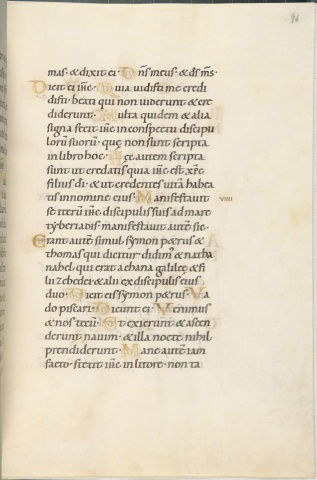 96
mas· & dixit ei· Dn̄s meus· & d̄s m̄s·
Dicit ei ih̄c· Quia uidisti me credi
disti· beati qui non uiderunt & cre
diderunt· Multa quidem & alia
signa fecit ih̄c in conspectu discipu
lorū suorū· que non sunt scripta
in libro hoc· Hec autem scripta
sunt ut credatis quia ih̄c est xp̄c
filius di· & ut credentes uitā habea
tis in nomine eius· Manifestauit
se iterū ih̄c discipulis suis ad mare
tyberiadis· manifestauit autē sic·
Erant autē simul symon petrus &
thomas qui dicitur didim' & natha
nahel qui erat a chana galileę & fi
lii zebedei & alii ex discipulis eius
duo· Dicit eis symon petrus· Va
do piscari· Dicunt ei· Venimus
& nos tecū· Et exierunt & ascen
derunt nauim· & illa nocte nihil
prendiderunt· Mane autē iam
facto· stetit ih̄c in litore· non ta